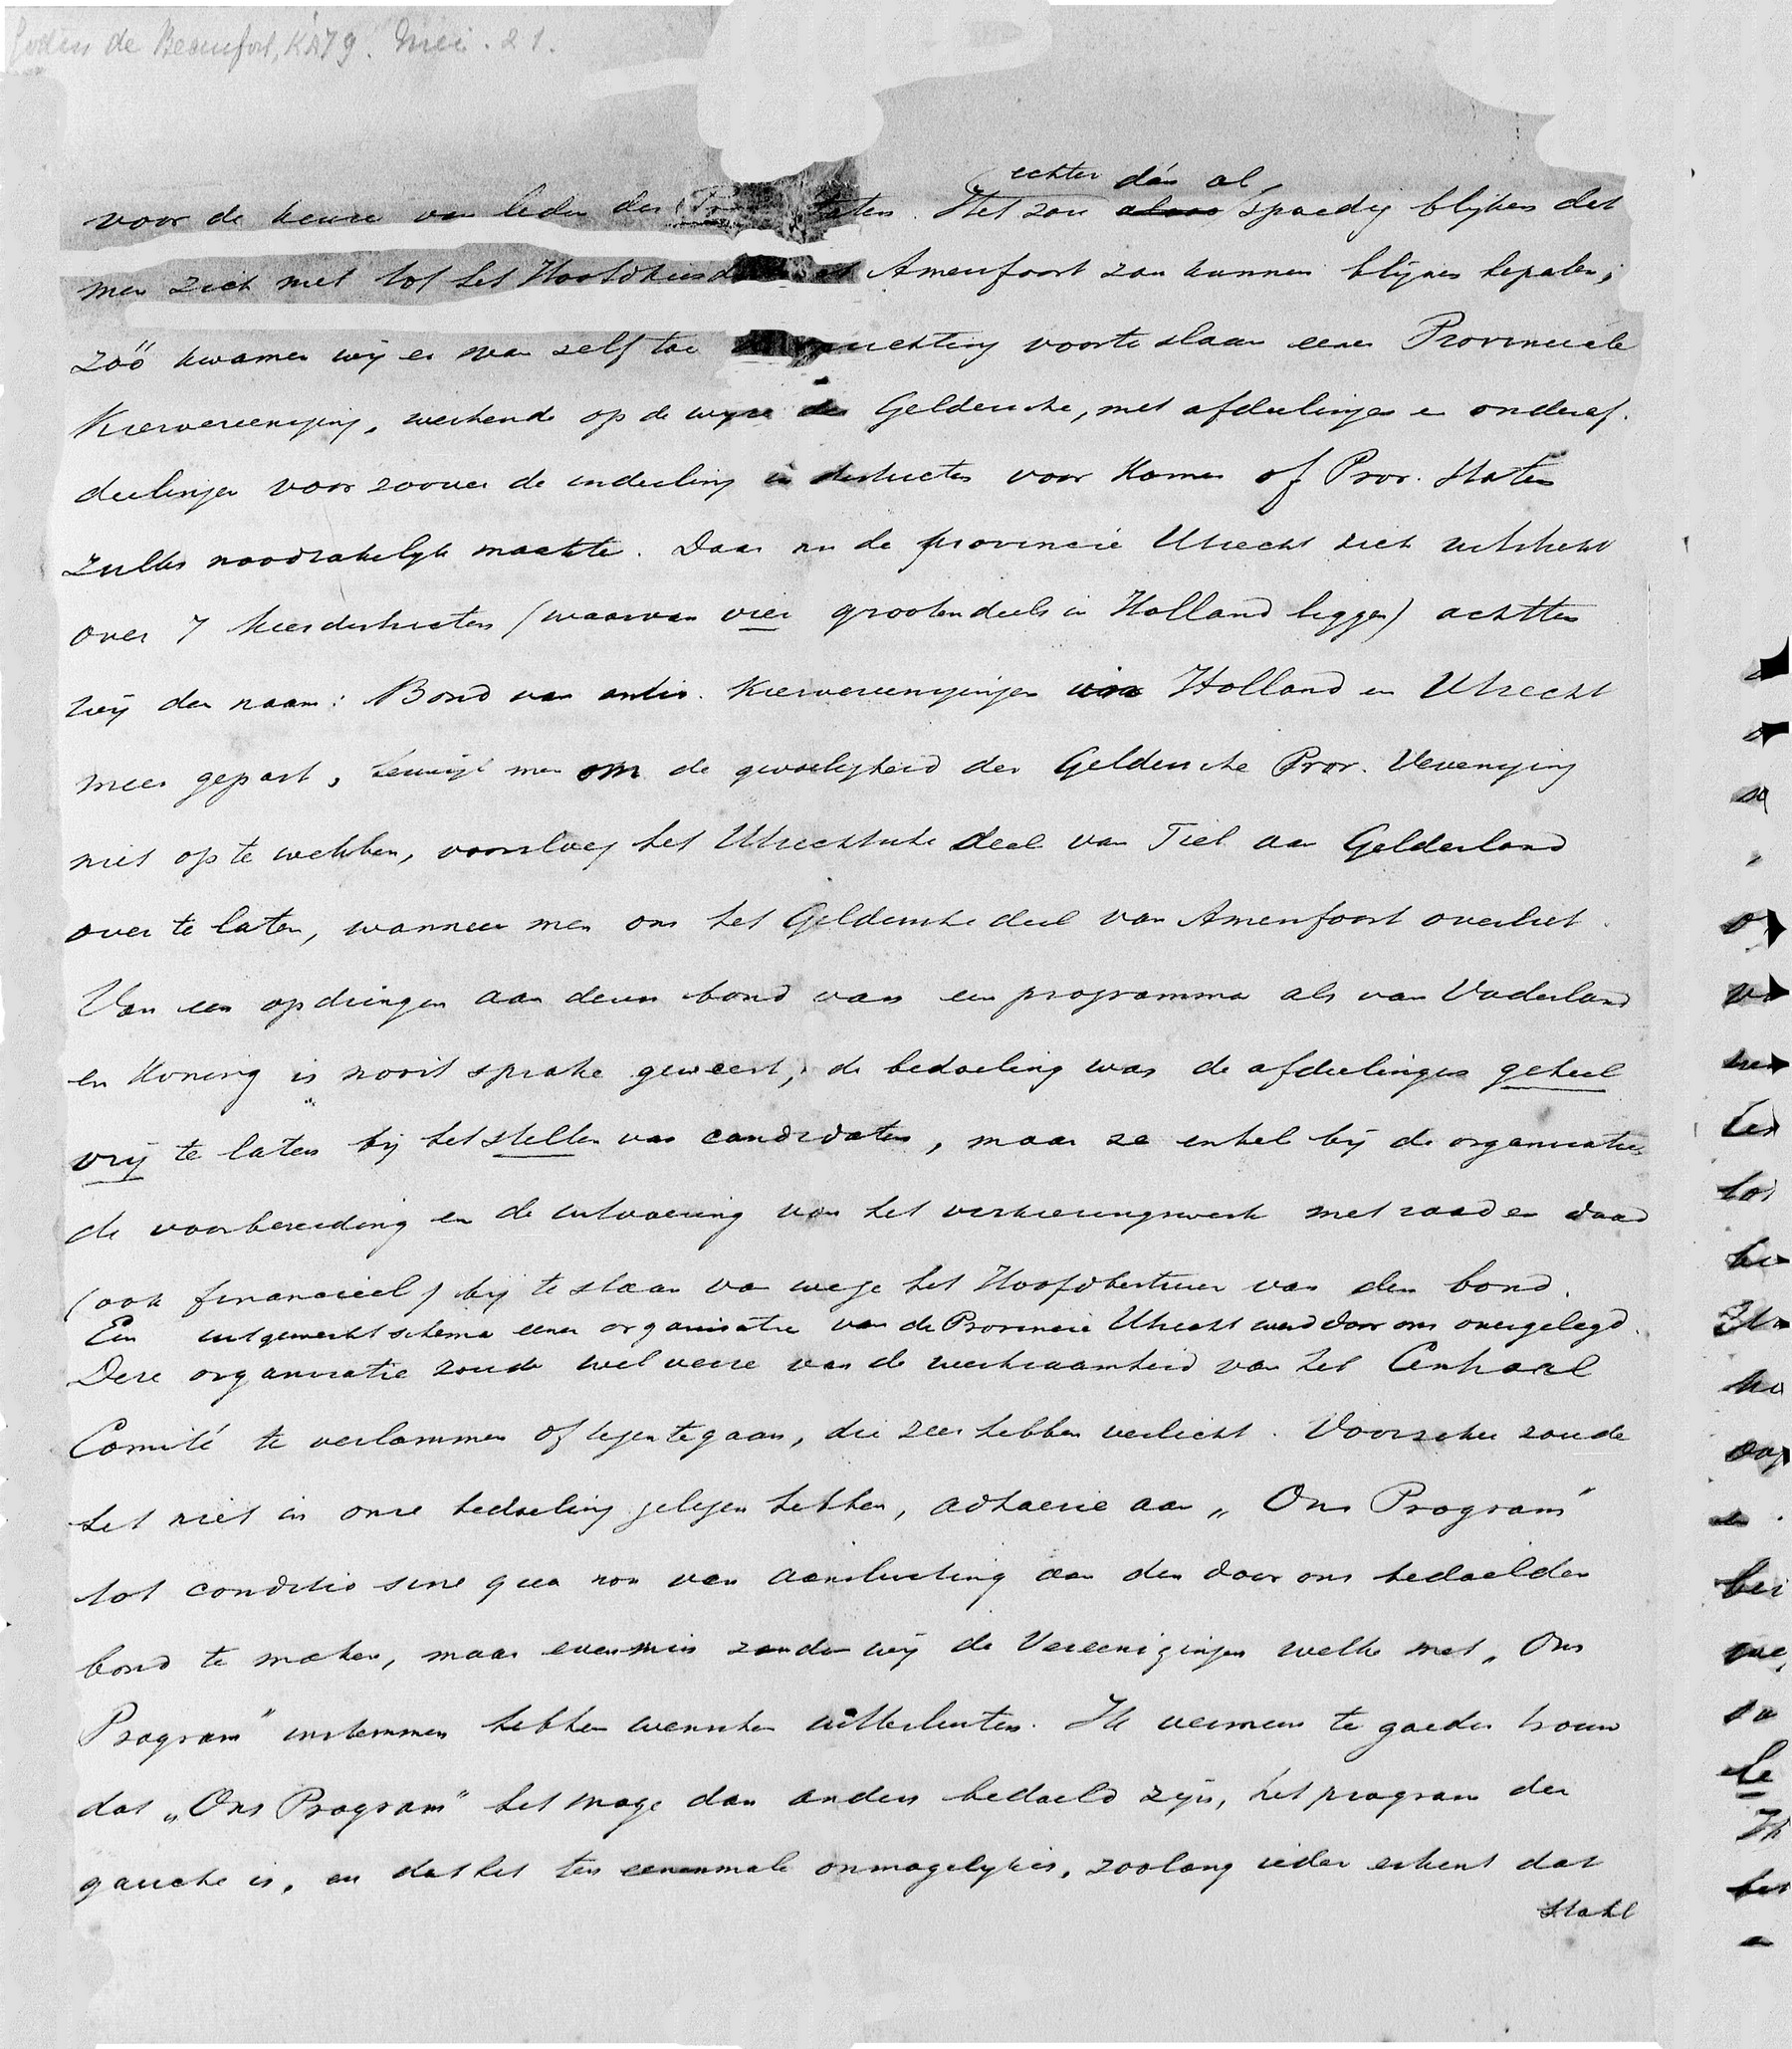 Godin de Beaufort, KA79. Mei. 21.
echter dán al,
voor de keuze van leden der Prov taten. Het zou alras spoedig blijken dat
men zich niet tot het Hoofdkiesd Amersfoort zou kunnen blijven bepalen;
zóó kwamen wij er van zelf toe richting voor te slaan eener Provinciale
Kiesvereeniging, werkende op de wijze der Geldersche, met afdeelingen en onderaf-
deelingen voor zoover de indeeling in districten voor Kamer of Prov. Staten
zulks noodzakelijk maakte. Daar nu de provincie Utrecht zich uitstrekt
over 7 kiesdistricten (waarvan vier grootendeels in Holland liggen) achtten
wij den naam: Bond van antir. Kiesvereenigingen in Holland en Utrecht
meer gepast, terwijl men om de gevoeligheid der Geldersche Prov. Vereeniging
niet op te wekken, voorsloeg het Utrechtsche deel van Tiel aan Gelderland
over te laten, wanneer men ons het Geldersche deel van Amersfoort overliet.
Van een opdringen aan dezen bond van een programma als van Vaderland
en Koning is nooit sprake geweest; de bedoeling was de afdeelingen geheel
vrij te laten bij het stellen van candidaten, maar ze enkel bij de organisatie
de voorbereiding en de uitvoering van het verkiezingswerk met raad en daad
(ook financieel) bij te staan van wege het Hoofdbestuur van den bond.
Een uitgewerkt schema eener organisatie van de Provincie Utrecht werd door ons overgelegd.
Deze organisatie zoude wel verre van de werkzaamheid van het Centraal
Comité te verlammen of tegen te gaan, die zeer hebben verlicht. Voorzeker zoude
het niet in onze bedoeling gelegen hebben, adhaesie aan „Ons Program"
tot conditio sine qua non van aansluiting aan den door ons bedoelden
bond te maken, maar evenmin zouden wij de Vereenigingen welke met „Ons
Program" instemmen hebben wenschen uittesluiten. Ik vermeen te goeder trouw
dat „Ons Program" het moge dan anders bedoeld zijn, het program der
gauche is, en dat het ten eenenmale onmogelijk is, zoolang ieder erkent dat
Stahl